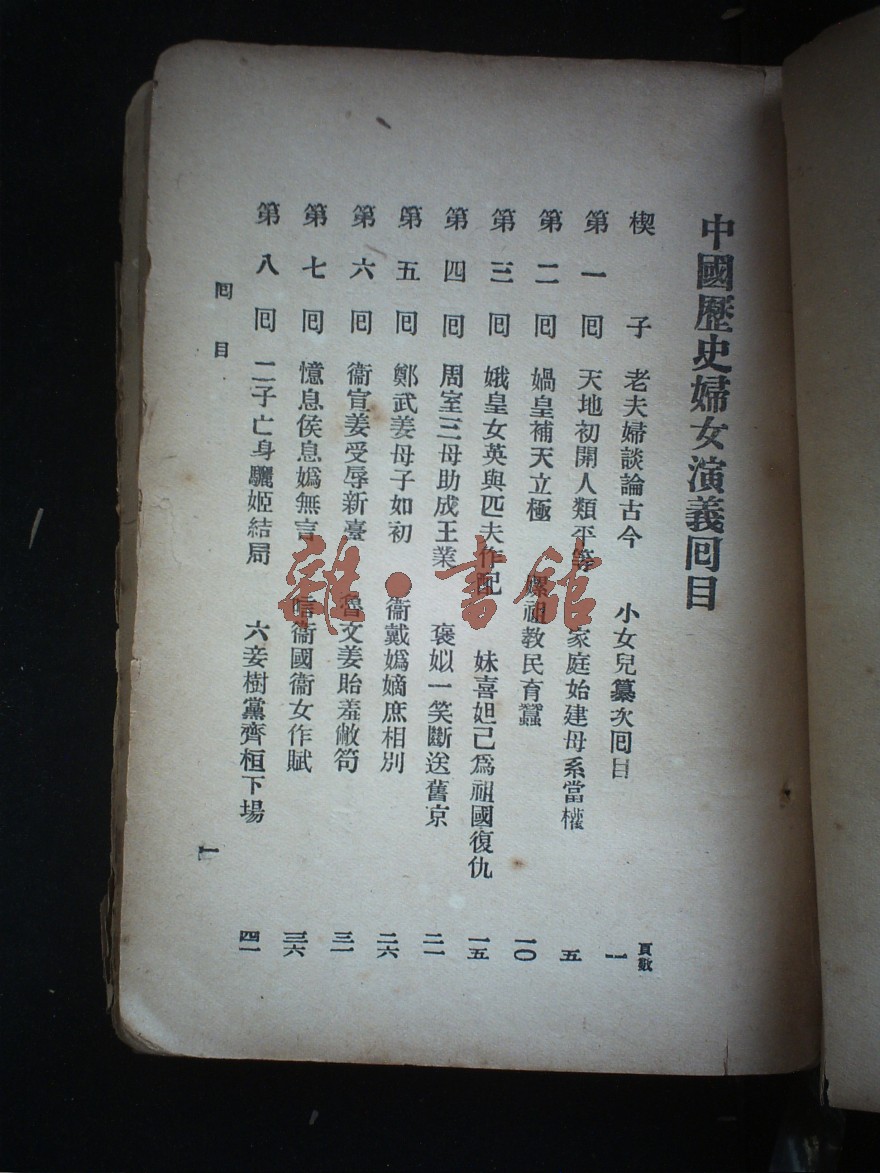 中國歷史婦女演義囘目
頁數
楔子 老夫婦談論古今 小女兒纂次囘目 一
第一囘 天地初開人類平等 家庭始建母系當權 五
第二囘 媧皇補天立極 嫘祖教民育蠶 一〇
第三囘 娥皇女英與匹夫作配 妹喜妲己爲祖國復仇 一五
第四囘 周室三母助成王業 褒姒一笑斷送舊京 二一
第五囘 鄭武姜母子如初 衞戴嬀嫡庶相別 二六
第六囘 衞宣姜受辱新臺 魯文姜貽羞敝笱 三一
第七囘 憶息侯息嬀無言 唁衞國衞女作賦 三六
第八囘 二子亡身驪姬結局 六妾樹黨齊桓下場 四一
囘目 一
雜·書館